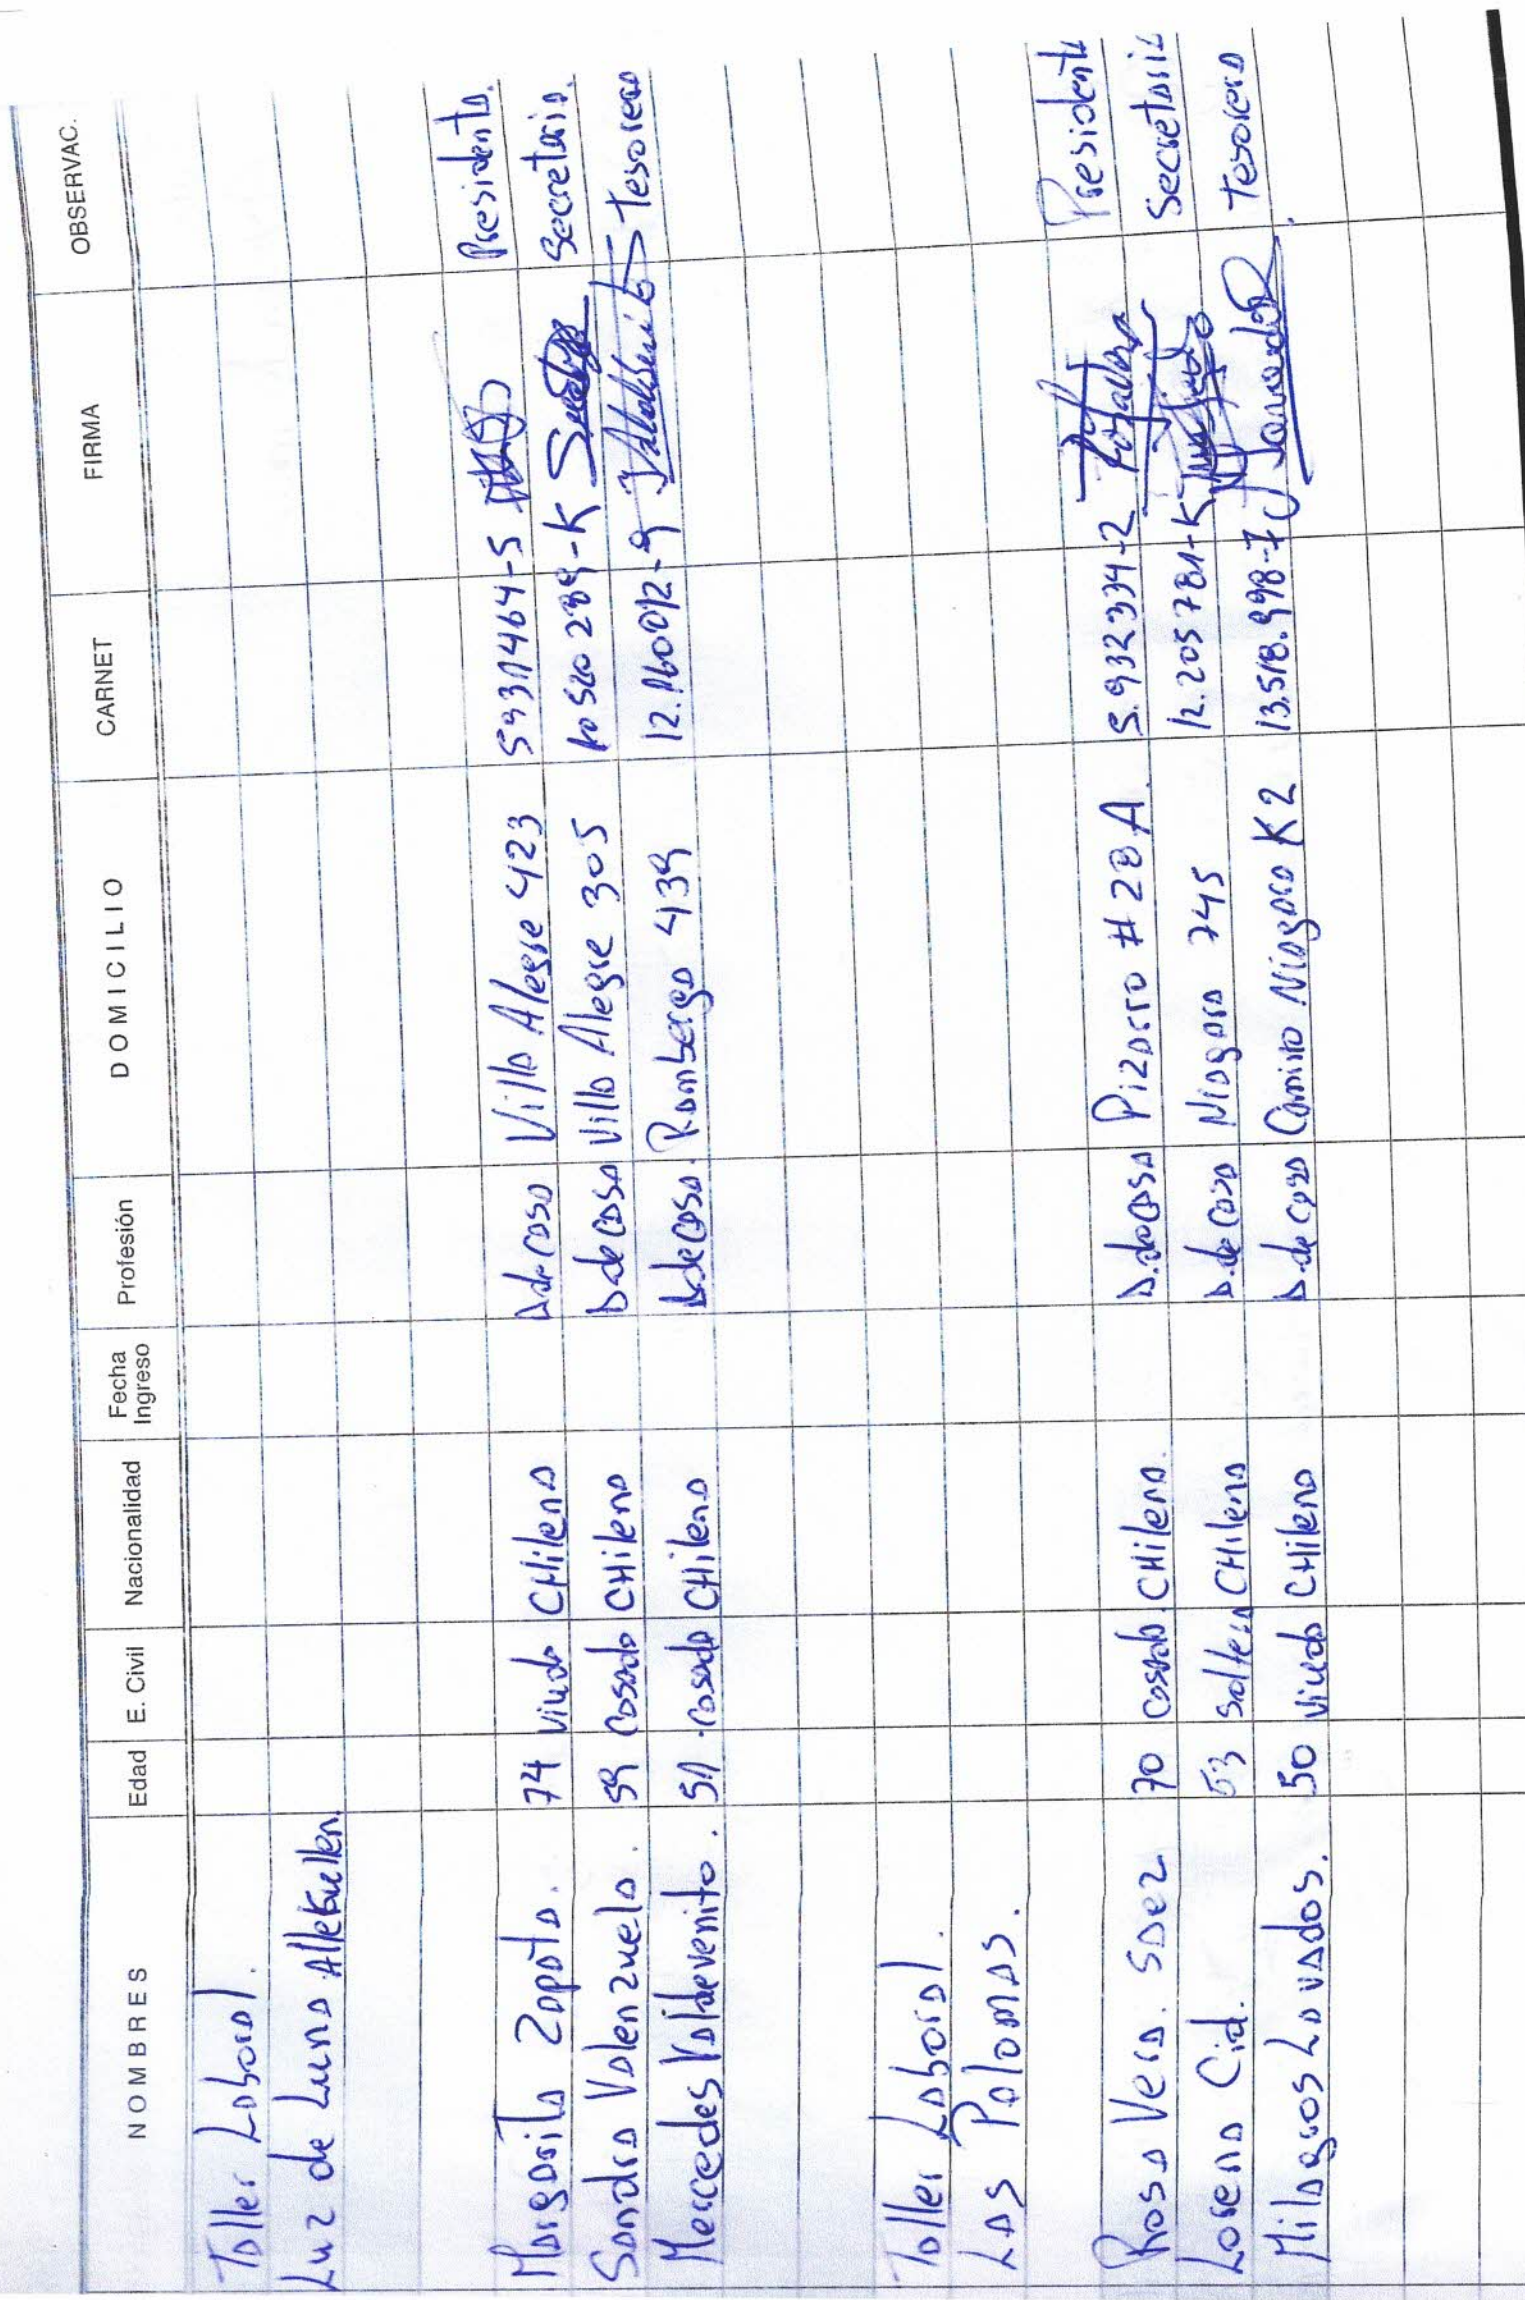 NOMBRES Edad E. Civil Nacionalidad Fecha Ingreso Profesión DOMICILIO CARNET FIRMA OBSERVAC.
Taller Laboral.
Luz de Luna Allekullen.
Margarita Zapata. 74 viuda CHilena D de casa Villa Alegre 423 5931464-5 Presidenta.
Sandra Valenzuela. 59 casada CHilena D de casa Villa Alegre 305 10520289-K Secretaria.
Mercedes Valdevenito. 51 casada CHilena D de casa. Romberga 439 12.160012-9 Valdebenito Tesorera
Taller Laboral.
Las Palomas.
Rosa Vera. Saez 70 casada. CHilena. D. de casa Pizarro # 28 A. 5.932334-2 Presidenta
Lorena Cid. 53 soltera CHilena D. de casa Niagara 745 12.205781-K Secretaria
Milagros Lavados. 50 viuda CHilena D. de casa Camino Niagara K2 13.518.998-7 Tesorera